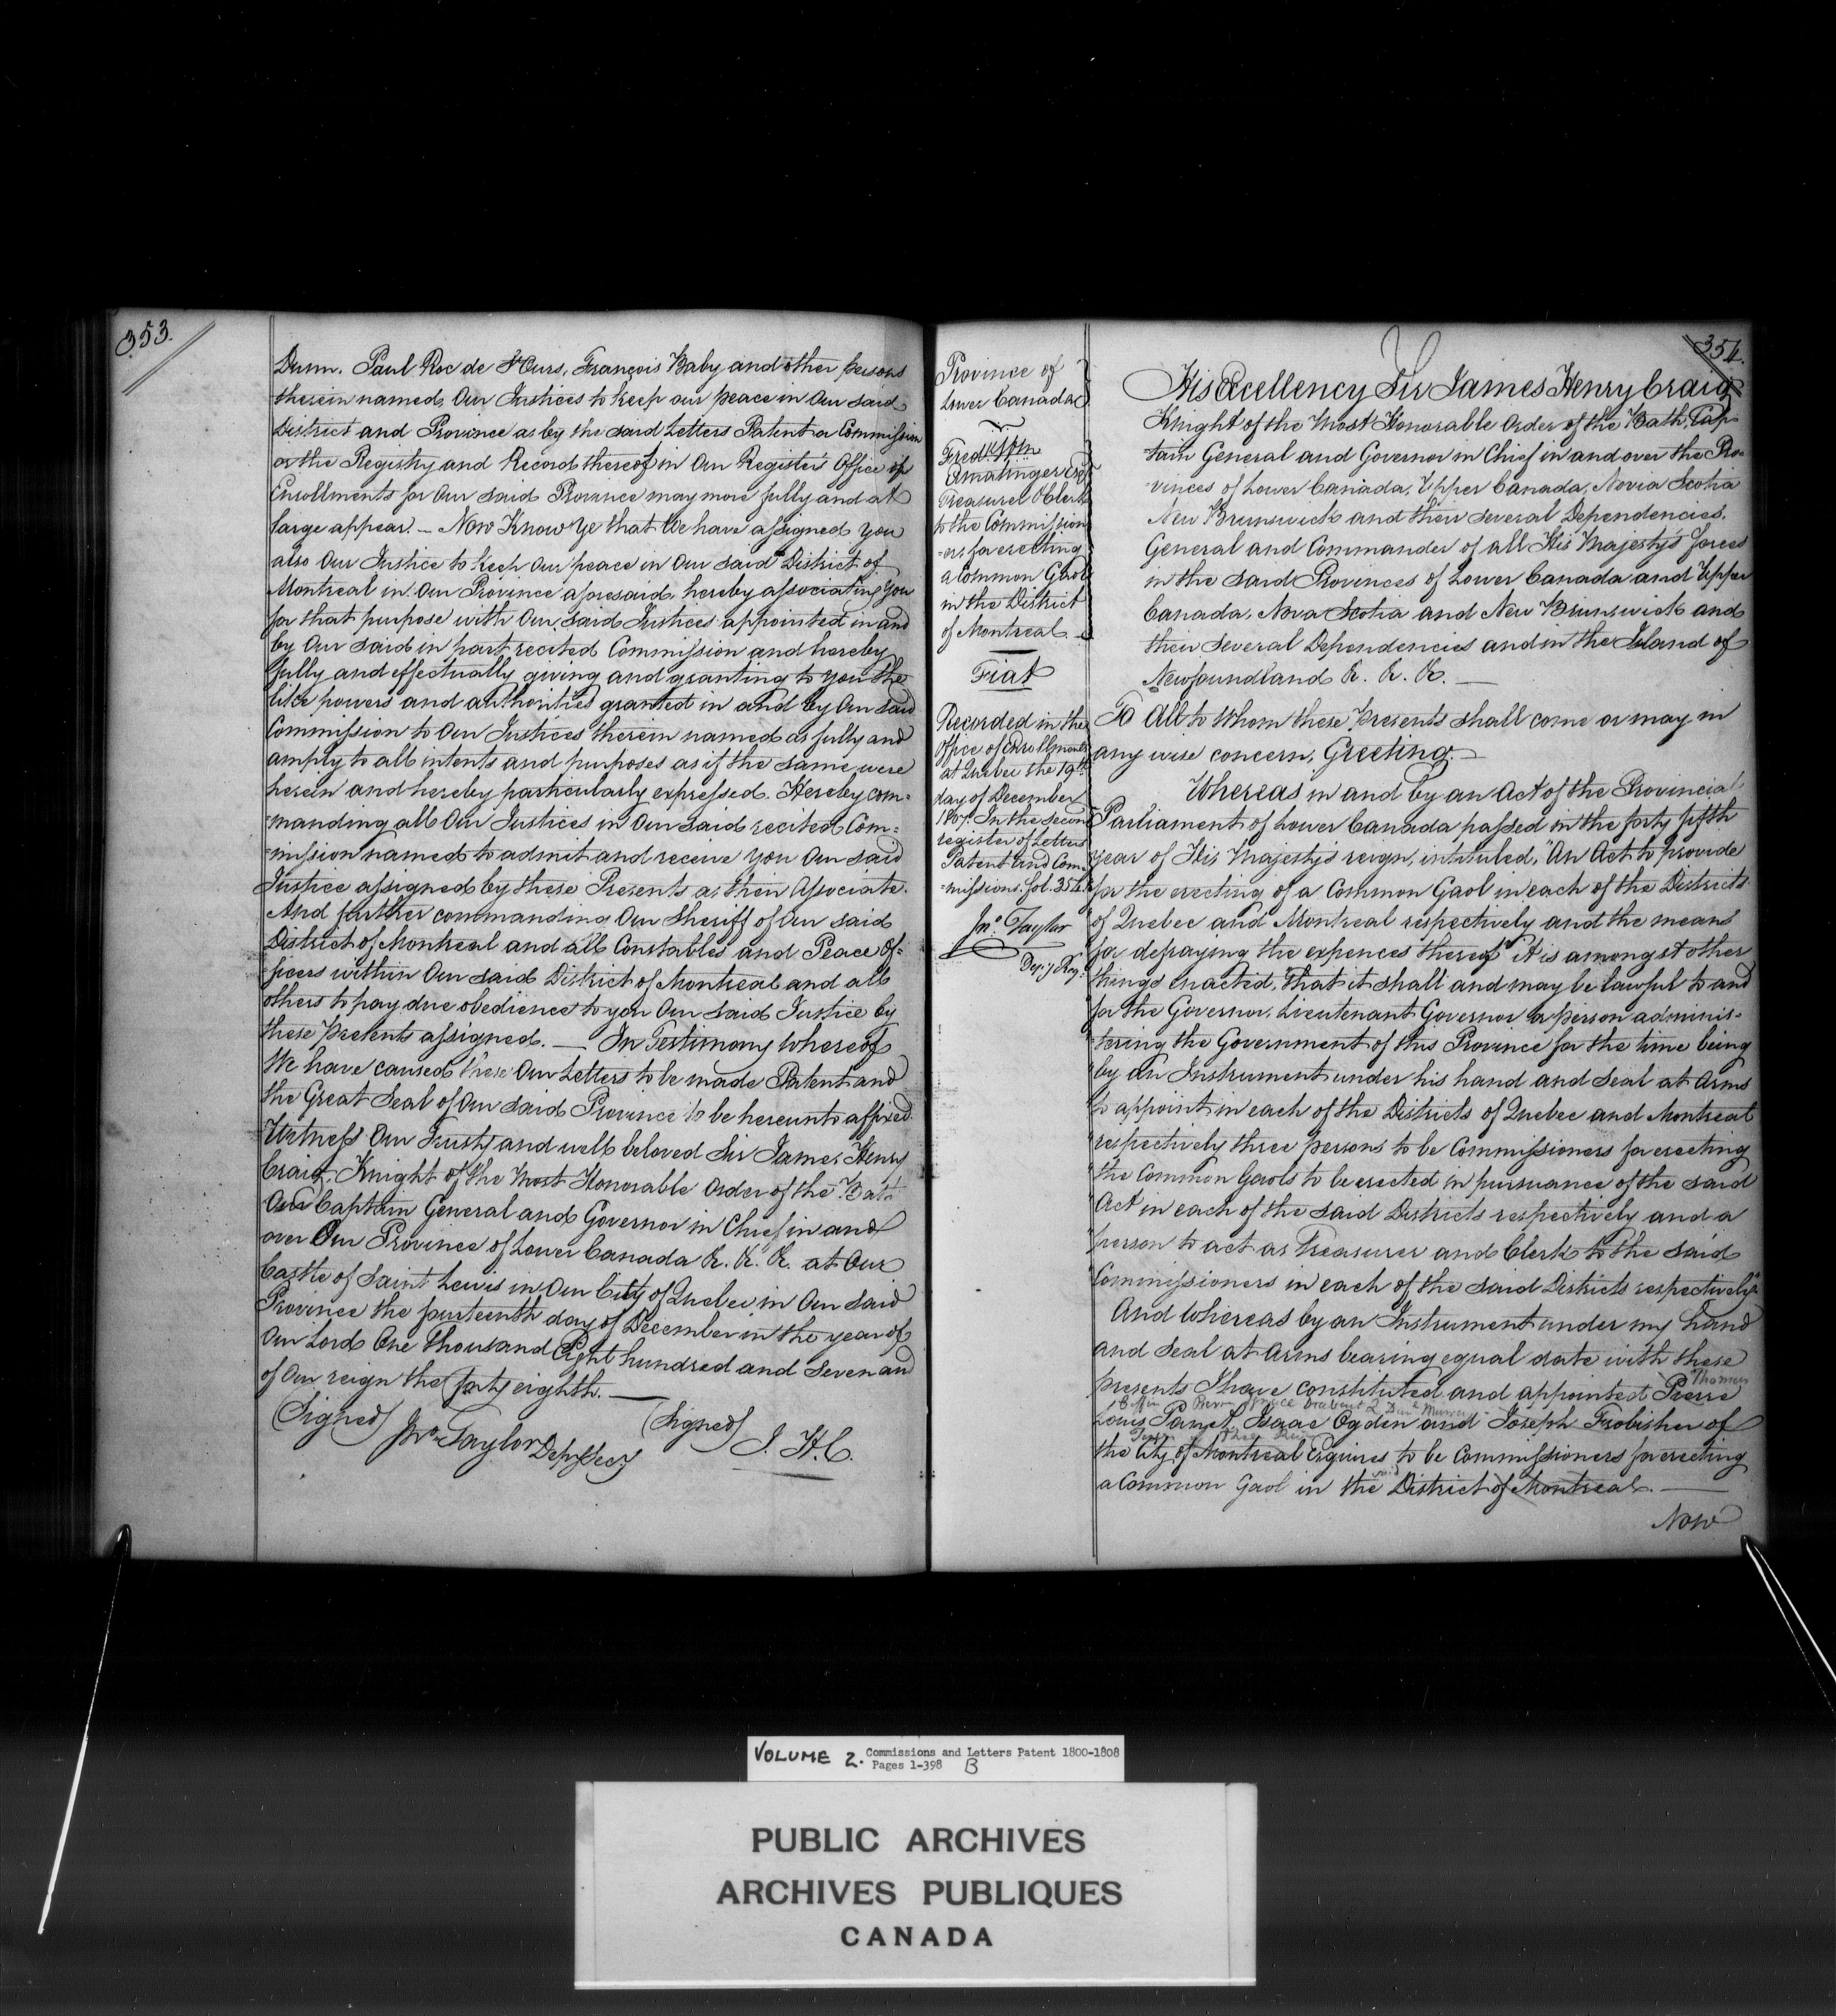 353.
Dunn. Paul Roc de St Ours, François Baby and other persons
therein named, Our Justices to keep our peace in Our said
District and Province as by the said Letters Patent a Commission
or the Registry and Record thereof in Our Register's Office of
Enrollments for Our said Province may more fully and at
large appear. — Now Know Ye that We have assigned you
also Our Justice to keep Our peace in Our said District of
Montreal in Our Province aforesaid, hereby associating you
for that purpose with Our said Justices appointed in and
by Our said in part recited Commission and hereby
fully and effectually giving and granting to you the
like powers and authorities granted in and by Our said
Commission to Our Justices therein named as fully and
amply to all intents and purposes as if the same were
herein and hereby particularly expressed. Hereby com=
=manding all Our Justices in Our said recited Com=
=mission named to admit and receive you Our said
Justice assigned by these Presents as their Associate.
And further commanding Our Sheriff of Our said
District of Montreal and all Constables and Peace Of=
ficers within Our said District of Montreal and all
others to pay due obedience to you Our said Justice by
these presents assigned. — In Testimony Whereof
We have caused these Our Letters to be made Patent and
the Great Seal of Our said Province to be hereunto affixed.
Witness Our Trusty and well beloved Sir James Henry
Craig, Knight of the Most Honorable Order of the Bath
Our Captain General and Governor in Chief in and
over Our Province of Lower Canada &. &. &. at Our
Castle of Saint Lewis in Our City of Quebec in Our said
Province the fourteenth day of December in the year of
Our Lord One thousand Eight hundred and Seven and
of Our reign the forty eighth. —
(Signed) (Signed) J. H. C.
Jno. Taylor Depy Secy
Province of
Lower Canada
Fredk Wm
Ermatinger Esqr
Treasurer & Clerk
to the Commission
=ers for erecting
a Common Gaol
in the District
of Montreal —
Fiat
Recorded in the
Office of Enrollments
at Quebec the 19th
day of December
1807. In the second
register of Letters
Patent and Com=
=missions. fol. 354.
Jno. Taylor
Depy Reg.
354.
His Excellency Sir James Henry Craig
Knight of the Most Honorable Order of the Bath, Cap=
tain General and Governor in Chief in and over the Pro=
=vinces of Lower Canada, Upper Canada, Novia Scotia
New Brunswick and their several Dependencies.
General and Commander of all His Majesty's forces
in the said Provinces of Lower Canada and Upper
Canada, Nova Scotia and New Brunswick and
their several Dependencies and in the Island of
Newfoundland &. &. &. —
To All to Whom these Presents shall come or may in
any wise concern, Greeting. —
Whereas in and by an Act of the Provincial
Parliament of Lower Canada passed in the forty fifth
year of His Majesty's reign, intituled, "An Act to provide
for the erecting of a Common Gaol in each of the Districts
of Quebec and Montreal respectively and the means
for defraying the expences thereof" it is amongst other
things enacted, "that it shall and may be lawful to and
for the Governor, Lieutenant Governor or person adminis=
"tering the Government of this Province for the time being
"by an Instrument under his hand and Seal at Arms
"to appoint in each of the Districts of Quebec and Montreal
"respectively three persons to be Commissioners for erecting
"the Common Gaols to be erected in pursuance of the said
"Act in each of the said Districts respectively and a
"person to act as Treasurer and Clerk to the said
"Commissioners in each of the said Districts respectively"
And Whereas by an Instrument under my hand
and Seal at Arms bearing equal date with these
Thomas
presents I have constituted and appointed Pierre
Louis Panet, Isaac Ogden and Joseph Frobisher of
the City of Montreal Esquires to be Commissioners for erecting
said
a Common Gaol in the District of Montreal. —
Now
VOLUME 2. Commissions and Letters Patent 1800-1808
Pages 1-398 B
PUBLIC ARCHIVES
ARCHIVES PUBLIQUES
CANADA